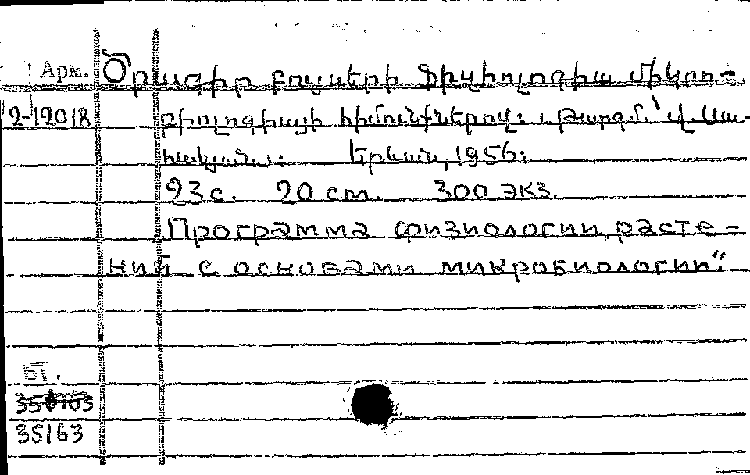 Арк. Ծրագիր բույսերի ֆիզիոլոգիա միկրո-
2-12018 բիոլոգիայի հիմունքներով: Թարգմ.՝ Վ. Սա-
հակյանը: Երևան, 1956:
23 с. 20 cm. 300 экз.
„Программа физиологии расте-
ний с основами микробиологии“:
БТ.
35163